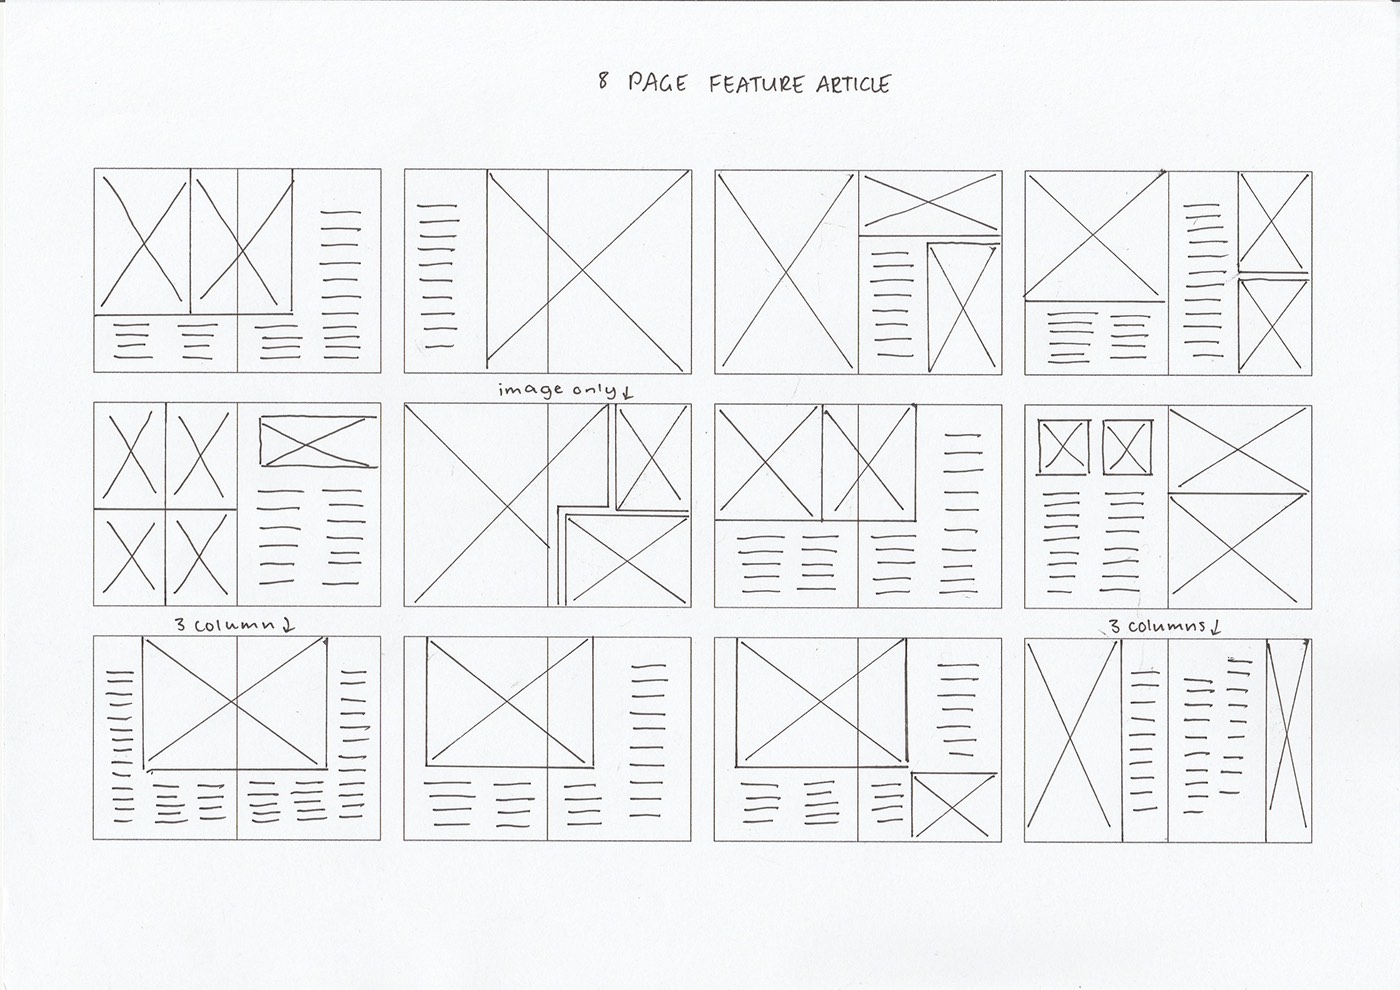 8 PAGE FEATURE ARTICLE
image only
3 column
3 columns